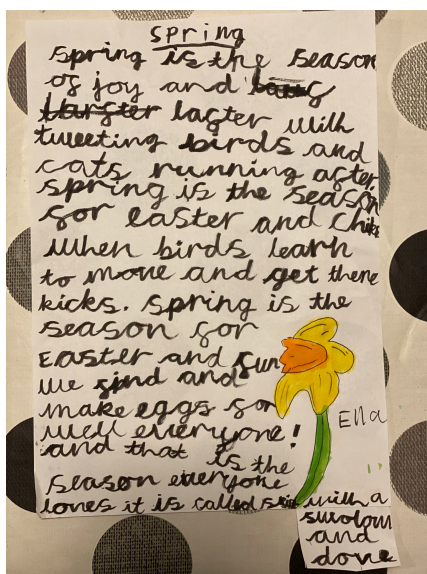 spring
spring is the season
of joy and
laster with
tweeting birds and
cats running after,
spring is the season
for easter and chiks
when birds learn
to move and get there
kicks. spring is the
season for
Easter and fun
we find and
make eggs for
well everyone!
and that is the
season everyone
loves it is called with a
swolow
and
dove
Ella